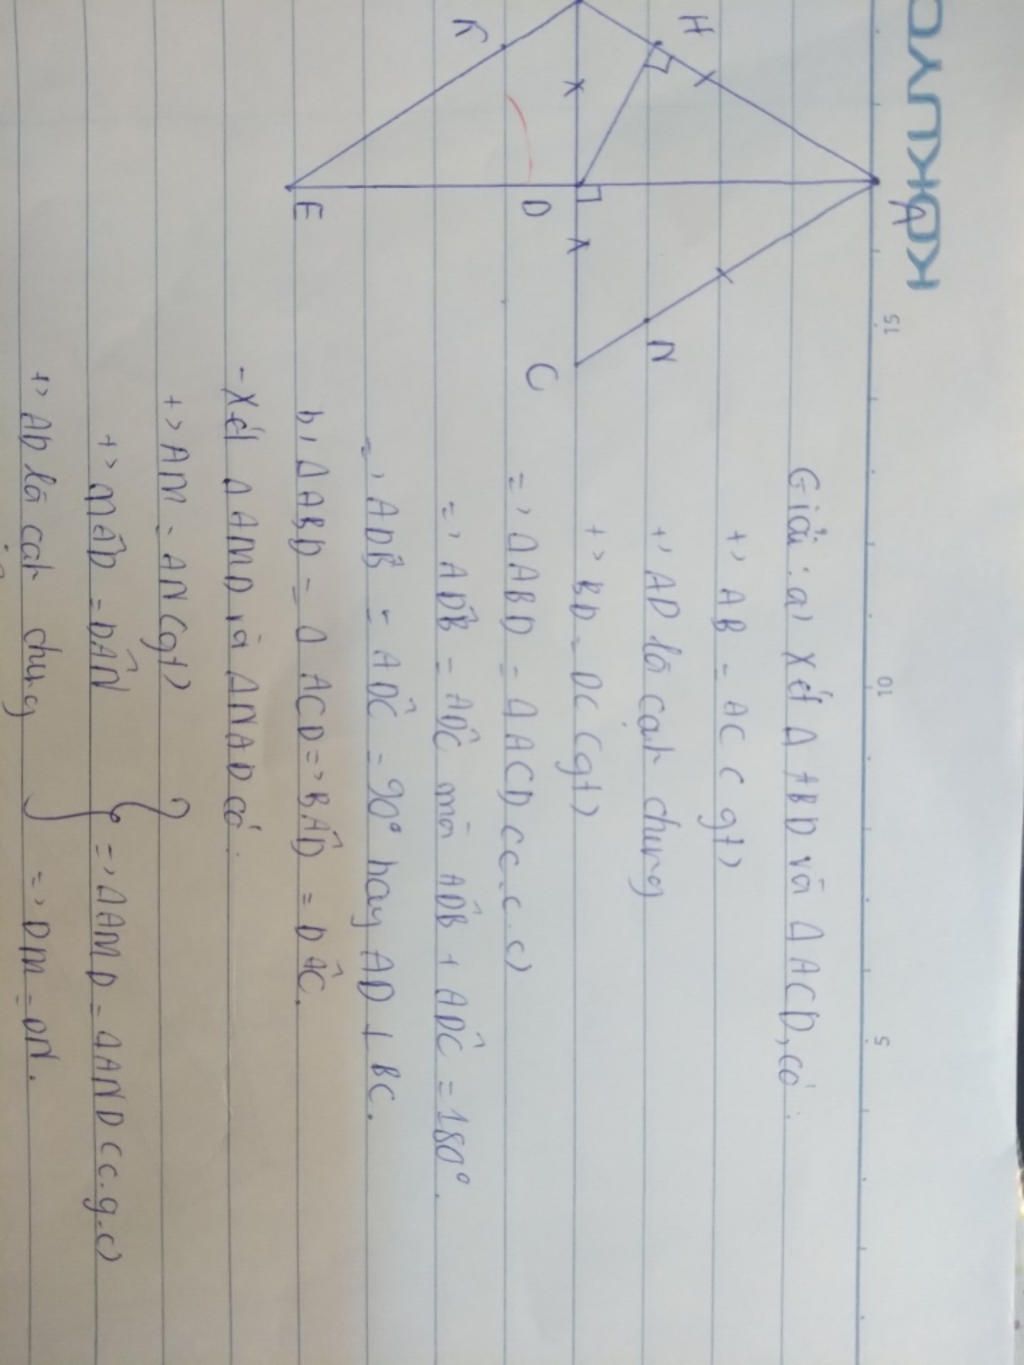 KOKUYO
15
10
5
A
H
N
K
D
C
E
Giải: a, Xét Δ ABD và Δ ACD, có:
+, AB = AC (gt)
+, AD là cạnh chung
+, BD = DC (gt)
=, ΔABD = ΔACD (c.c.c)
=, AD̂B = AD̂C mà AD̂B + AD̂C = 180°.
=, AD̂B = AD̂C = 90° hay AD ⊥ BC.
b, ΔABD = Δ ACD =, BÂD = DÂC.
- Xét Δ AMD và ΔNAD có:
+, AM = AN (gt)
+, MÂD = DÂN } =, ΔAMD = ΔAND (c.g.c)
+, AD là cạh chung =, DM = DN.